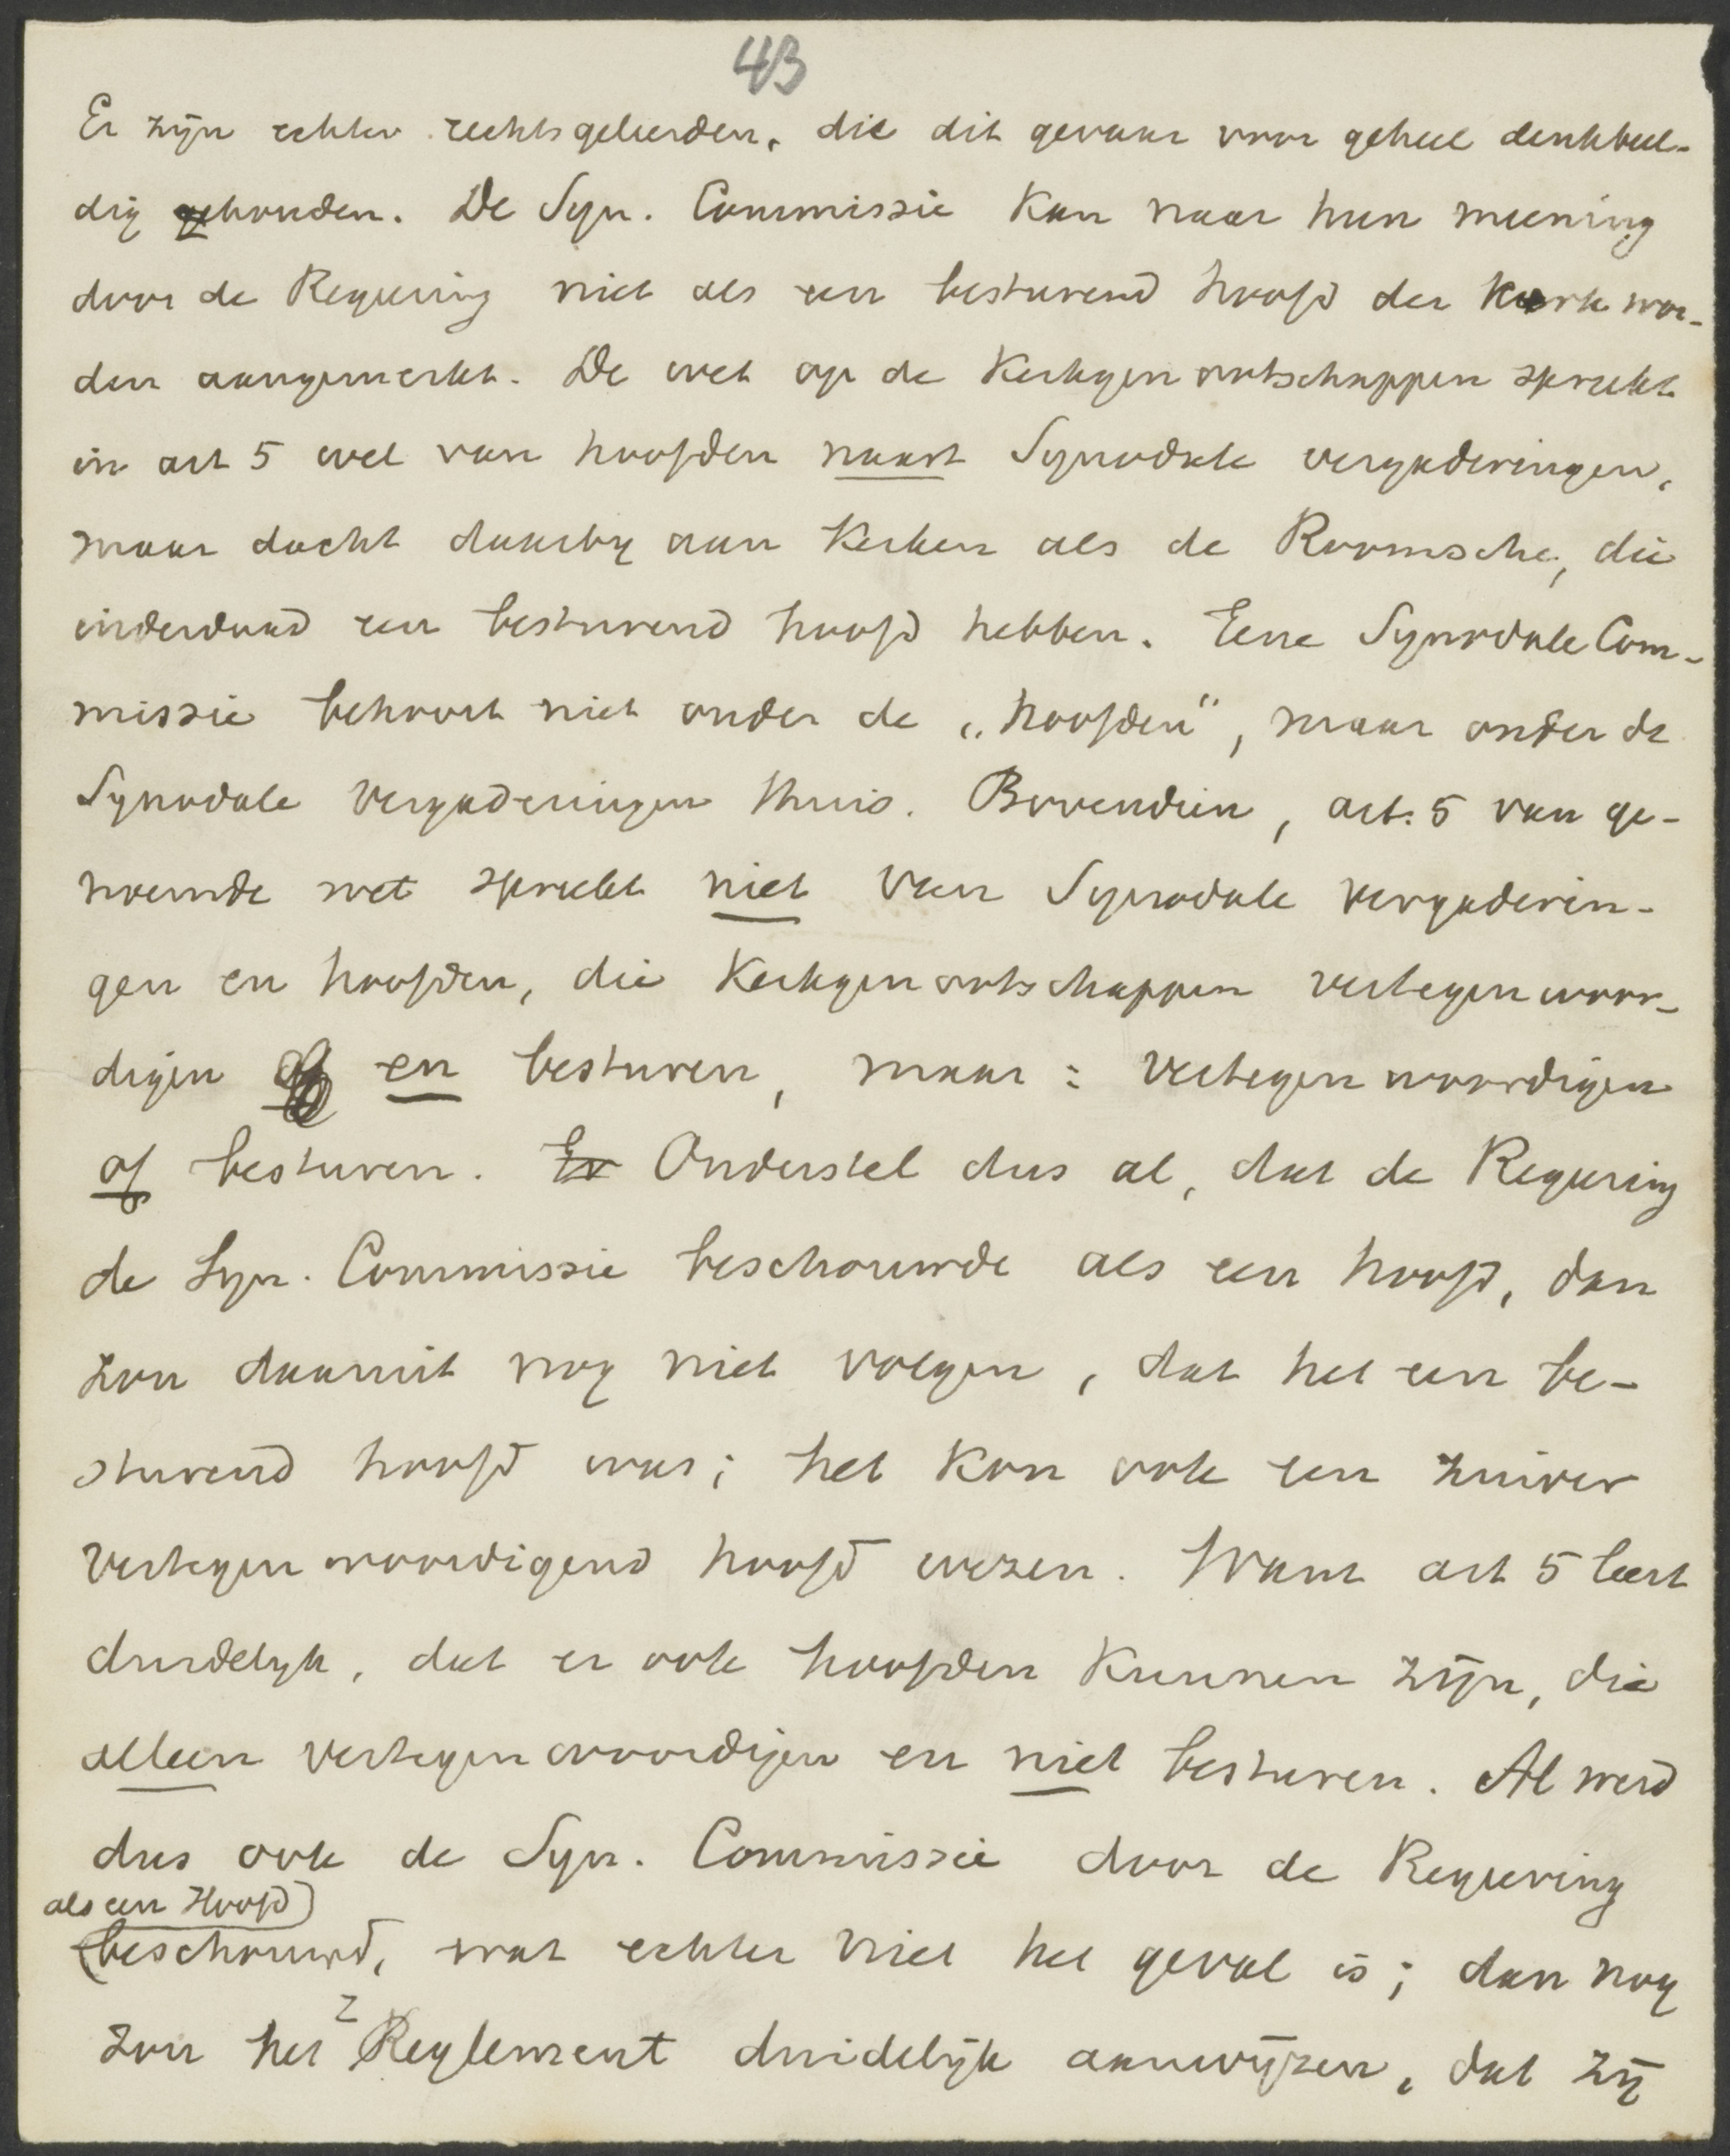 43
Er zijn echter rechtsgeleerden, die dit gevaar voor geheel denkbeel-
dig houden. De Syn. Commissie kan naar hun meening
door de Regeering niet als een besturend hoofd der kerk wor-
den aangemerkt. De wet op de Kerkgenootschappen spreekt
in art 5 wel van hoofden naast Synodale vergaderingen,
maar dacht daarbij aan Kerken als de Roomsche, die
inderdaad een besturend hoofd hebben. Eene Synodale Com-
missie behoort niet onder de „hoofden", maar onder de
Synodale vergaderingen thuis. Bovendien, art. 5 van ge-
noemde wet spreekt niet van Synodale vergaderin-
gen en hoofden, die Kerkgenootschappen vertegenwoor-
digen en besturen, maar: vertegenwoordigen
of besturen. Er Onderstel dus al, dat de Regeering
de Syn. Commissie beschouwde als een hoofd, dan
zou daaruit nog niet volgen, dat het een be-
sturend hoofd was; het kon ook een zuiver
vertegenwoordigend hoofd wezen. Want art 5 leert
duidelijk, dat er ook hoofden kunnen zijn, die
alleen vertegenwoordigen en niet besturen. Al werd
dus ook de Syn. Commissie door de Regeering
als een Hoofd
beschouwd, wat echter niet het geval is; dan nog
zou het Reglement duidelijk aanwijzen, dat zij